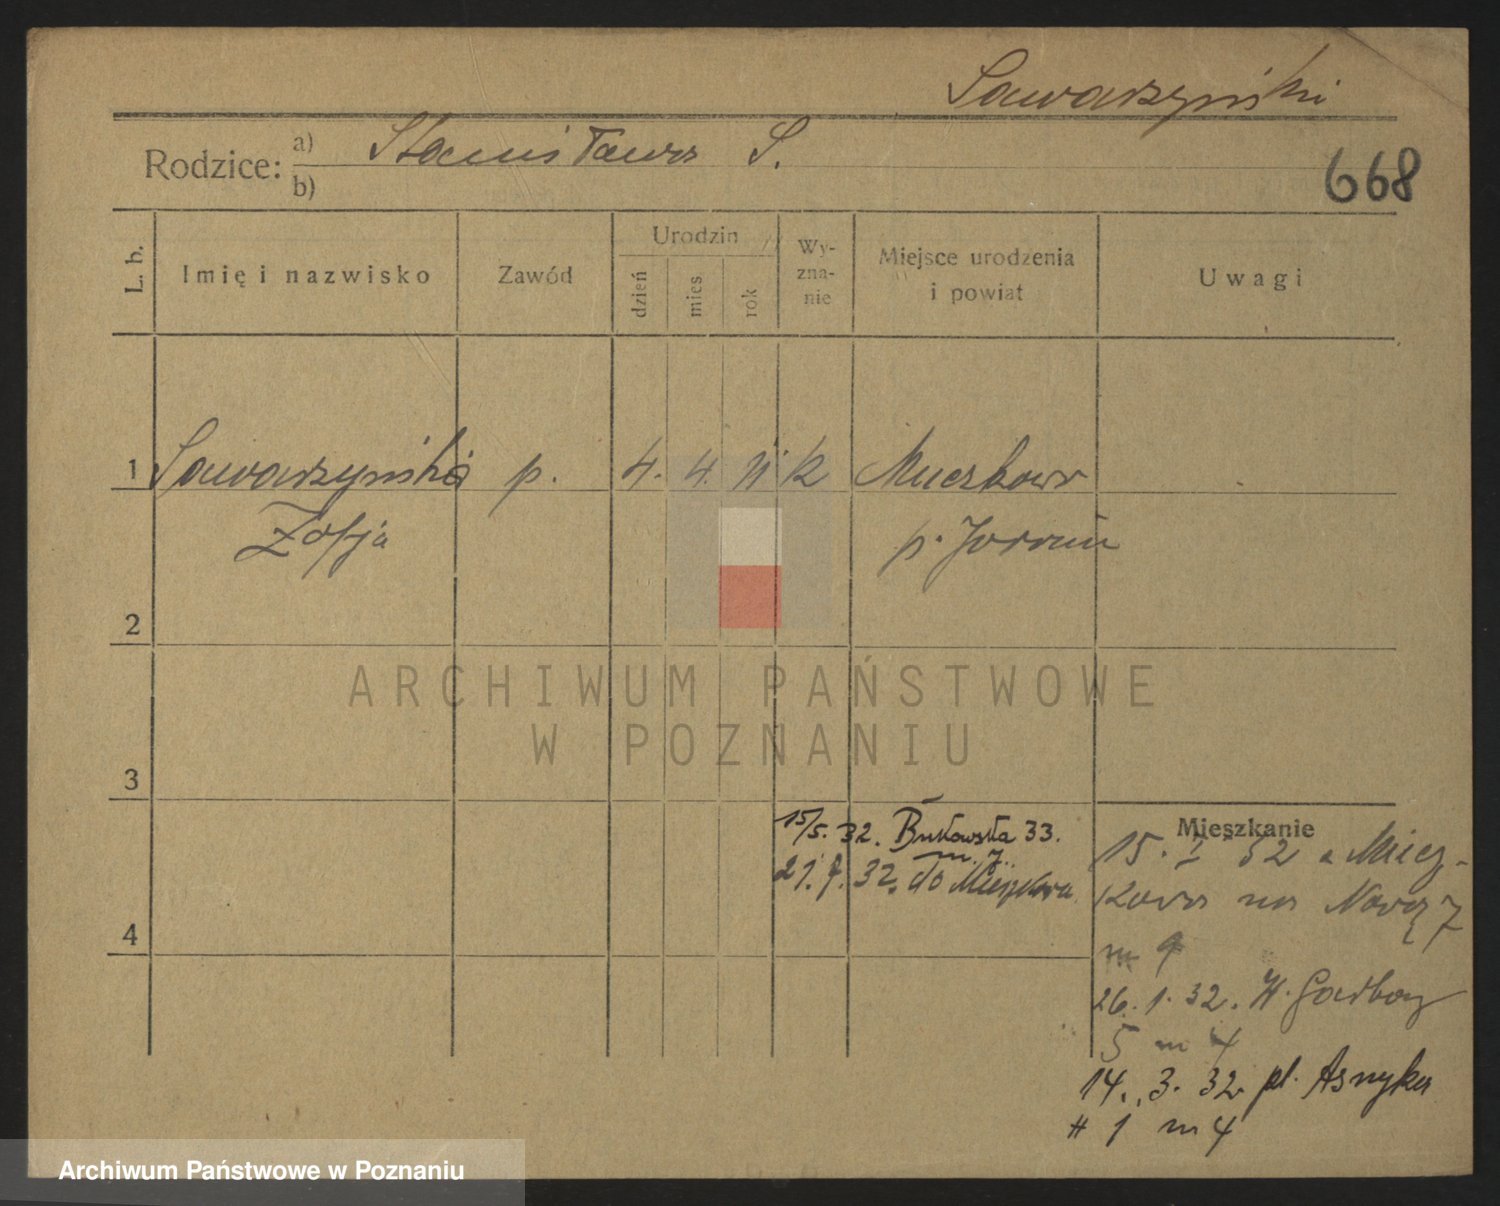 Sawarzyński
Rodzice: a) Stanisława S.
b)
668
L. b.
Imię i nazwisko
Zawód
Urodzin
dzień
mies
rok
Wy-
zna-
nie
Miejsce urodzenia
i powiat
Uwagi
1 Sawarzyńska p. 4. 4. 11 k Mieczkowo
Zofja p.
2
ARCHIWUM PAŃSTWOWE
W POZNANIU
3
Mieszkanie
15/5. 32. Bukowska 33.
m. 7.
21. 7. 32. do Mieczkowa
15. I 32 z Miecz-
kowa na Nową 7
m 9
26. 1. 32. H. Garbary
5 m 4
14. 3. 32. pl. Asnyka
# 1 m 4
4
Archiwum Państwowe w Poznaniu